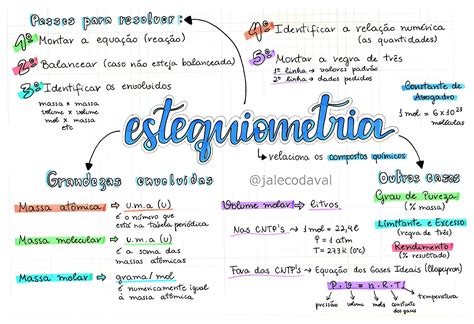 Passos para resolver:
1º Montar a equação (reação)
2º Balancear (caso não esteja balanceada)
3º Identificar os envolvidos
massa x massa
volume x volume
mol x massa
etc
4º Identificar a relação numérica
(as quantidades)
5º Montar a regra de três
1ª linha → valores padrão
2ª linha → dados pedidos
Constante de
Avogadro
1 mol = 6 x 10²³
moléculas
estequiometria
relaciona os compostos químicos
@jalecodaval
Grandezas envolvidas
Massa atômica → u.m.a (U)
é o número que
está na tabela periódica
Massa molecular → u.m.a (U)
é a soma das
massas atômicas
Massa molar → grama/mol
é numericamente igual
à massa atômica
Volume molar → litros
Nas CNTP's → 1 mol = 22,4L
P = 1 atm
T = 273K (0°C)
Fora das CNTP's → Equação dos Gases Ideais (Clapeyron)
P.V = n.R.T
pressão volume mols constante dos gases temperatura
Outros casos
Grau de Pureza
(% massa)
Limitante e Excesso
(regra de três)
Rendimento
(% resultado)